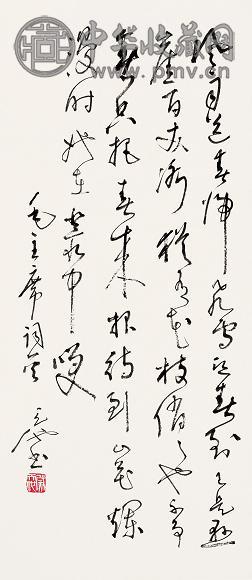 中华收藏网
www.pmv.cn
风雨送春归飞雪迎春到已是悬
崖百丈冰犹有花枝俏々也不争
春只把春来报待到山花烂
漫时她在丛中笑
毛主席词
书